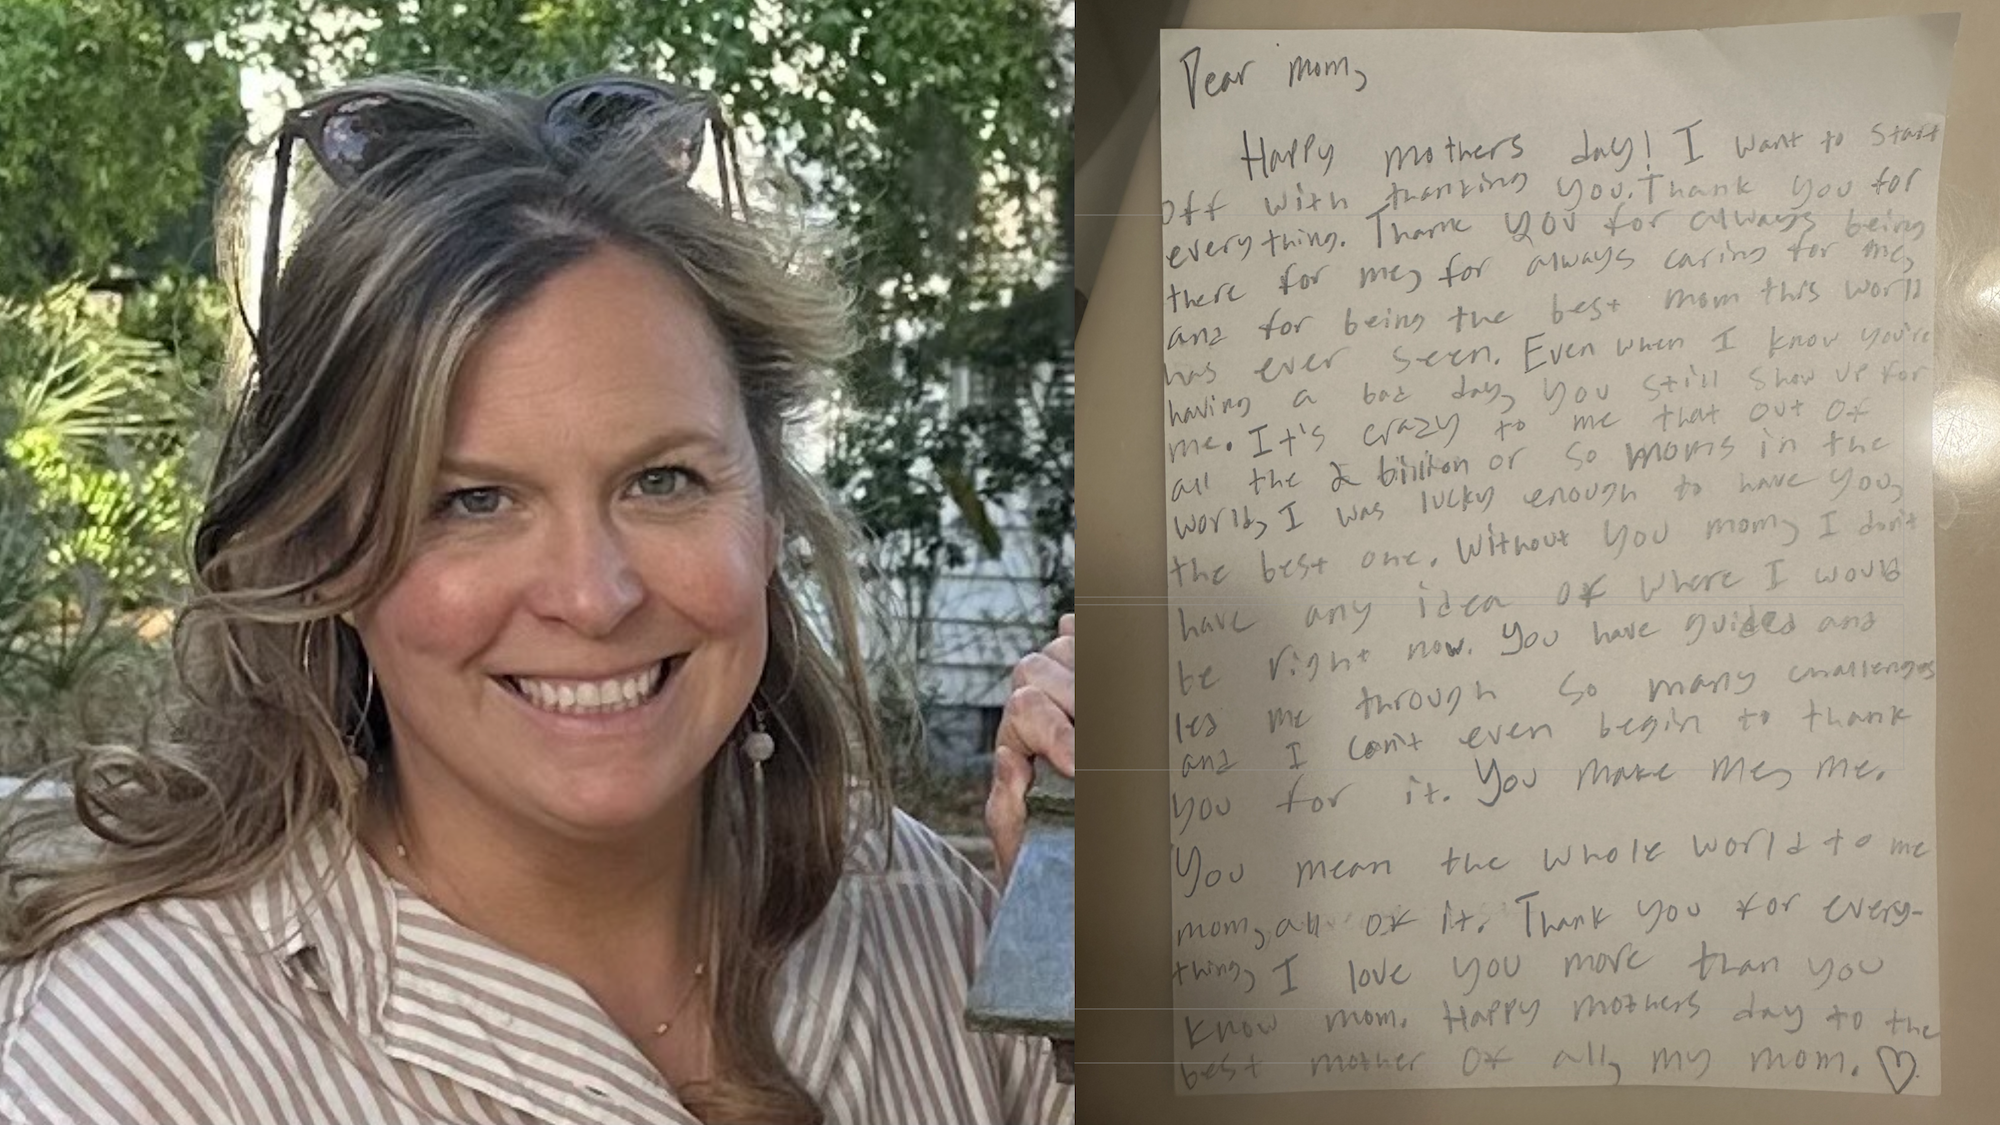 Dear mom,
Happy mothers day! I want to start
off with thanking you. Thank you for
everything. Thank you for always being
there for me, for always caring for me,
and for being the best mom this world
has ever seen. Even when I know you're
having a bad day, you still show up for
me. It's crazy to me that out of
all the 2 billion or so moms in the
world, I was lucky enough to have you,
the best one. Without you mom, I don't
have any idea of where I would
be right now. You have guided and
led me through so many challenges
and I can't even begin to thank
you for it. You make me, me.
You mean the whole world to me
mom, all of it. Thank you for every-
thing, I love you more than you
know mom. Happy mothers day to the
best mother of all, my mom. ♡